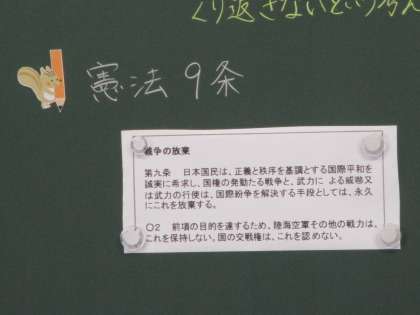 くり返さないという考え
憲法9条
戦争の放棄
第九条　日本国民は、正義と秩序を基調とする国際平和を
誠実に希求し、国権の発動たる戦争と、武力に よる威嚇又
は武力の行使は、国際紛争を解決する手段としては、永久
にこれを放棄する。
○2　前項の目的を達するため、陸海空軍その他の戦力は、
これを保持しない。国の交戦権は、これを認めない。